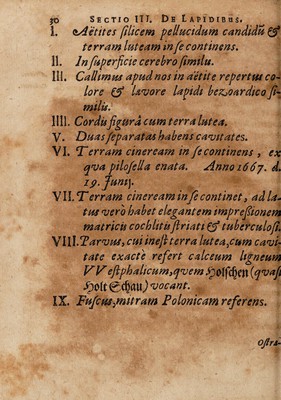 30 SECTIO III. DE LAPIDIBUS.
I. Aëtites silicem pellucidum candidũ &
terram luteam in se continens.
II. In superficie cerebro similu.
III. Callimus apud nos in aëtite repertus co-
lore & lavore lapidi bezoardico si-
milu.
IIII. Cordu figurâ cum terra lutea.
V. Duas separatas habens cavitates.
VI. Terram cineream in se continens, ex
qua pilosella enata. Anno 1667. d.
19. Junÿ.
VII. Terram cineream in se continet, ad la-
tus verò habet elegantem impreßionem
matricu cochlitu striati & tuberculosi.
VIII. Parvus, cui inest terra lutea, cum cavi-
tate exacte refert calceum ligneum
VVestphalicum, qvem Holschen (qvasi
Holt Schau) vocant.
IX. Fuscus, mitram Polonicam referens.
Ostra-